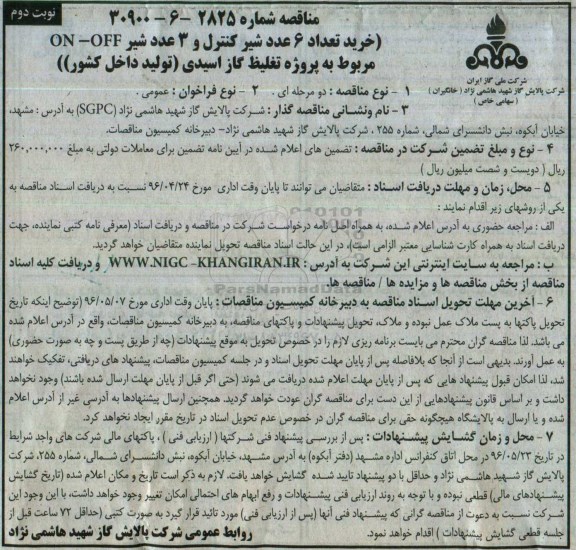 نوبت دوم
مناقصه شماره ۲۸۲۵ -۶- ۳۰۹۰۰
(خرید تعداد ۶ عدد شیر کنترل و ۳ عدد شیر ON –OFF
مربوط به پروژه تغلیظ گاز اسیدی (تولید داخل کشور))
شرکت ملی گاز ایران
شرکت پالایش گاز شهید هاشمی نژاد (خانگیران)
( سهامی خاص )
۱ - نوع مناقصه : دو مرحله ای . ۲ - نوع فراخوان : عمومی .
۳ - نام ونشانی مناقصه گذار : شرکت پالایش گاز شهید هاشمی نژاد (SGPC) به آدرس : مشهد،
خیابان آبکوه، نبش دانشسرای شمالی، شماره ۲۵۵ ، شرکت پالایش گاز شهید هاشمی نژاد- دبیرخانه کمیسیون مناقصات.
۴ - نوع و مبلغ تضمین شرکت در مناقصه : تضمین های اعلام شده در آیین نامه تضمین برای معاملات دولتی به مبلغ ۲۶۰,۰۰۰,۰۰۰
ریال ( دویست و شصت میلیون ریال )
۵ - محل، زمان و مهلت دریافت اسناد : متقاضیان می توانند تا پایان وقت اداری مورخ ۹۶/۰۴/۲۴ نسبت به دریافت اسناد مناقصه به
یکی از روشهای زیر اقدام نمایند :
الف : مراجعه حضوری به آدرس اعلام شده، به همراه اصل نامه درخواست شرکت در مناقصه و دریافت اسناد (معرفی نامه کتبی نماینده، جهت
دریافت اسناد به همراه کارت شناسایی معتبر الزامی است)، در این حالت اسناد مناقصه تحویل نماینده متقاضیان خواهد گردید.
ب : مراجعه به سایت اینترنتی این شرکت به آدرس : WWW.NIGC -KHANGIRAN.IR و دریافت کلیه اسناد
مناقصه از بخش مناقصه ها و مزایده ها / مناقصه ها.
۶ - آخرین مهلت تحویل اسناد مناقصه به دبیرخانه کمیسیون مناقصات : پایان وقت اداری مورخ ۹۶/۰۵/۰۷ (توضیح اینکه تاریخ
تحویل پاکتها به پست ملاک عمل نبوده و ملاک، تحویل پیشنهادات و پاکتهای مناقصه، به دبیرخانه کمیسیون مناقصات، واقع در آدرس اعلام شده
می باشد. لذا مناقصه گران محترم می بایست برنامه ریزی لازم را در خصوص تحویل به موقع پیشنهادات (چه از طریق پست و چه به صورت حضوری)
به عمل آورند. بدیهی است از آنجا که بلافاصله پس از پایان مهلت تحویل اسناد و در جلسه کمیسیون مناقصات، پیشنهاد های دریافتی، تفکیک خواهند
شد، لذا امکان قبول پیشنهاد هایی که پس از پایان مهلت اعلام شده دریافت می شوند (حتی اگر قبل از پایان مهلت ارسال شده باشند) وجود نخواهد
داشت و بر اساس قانون پیشنهادهایی از این دست برای مناقصه گران عودت خواهد گردید. همچنین ارسال پیشنهادها به آدرسی غیر از آدرس اعلام
شده و یا ارسال به پالایشگاه هیچگونه حقی برای مناقصه گران در خصوص عدم تحویل اسناد در تاریخ مقرر ایجاد نخواهد کرد.
۷ - محل و زمان گشایش پیشنهادات : پس از بررسی پیشنهاد فنی شرکتها ( ارزیابی فنی ) ، پاکتهای مالی شرکت های واجد شرایط
در تاریخ ۹۶/۰۵/۲۳ در محل اتاق کنفرانس اداره مشهد (دفتر آبکوه) به آدرس مشهد، خیابان آبکوه، نبش دانشسرای شمالی، شماره ۲۵۵، شرکت
پالایش گاز شهید هاشمی نژاد و حداقل با دو پیشنهاد تایید شده گشایش خواهد یافت. لازم به ذکر است تاریخ و مکان اعلام شده (تاریخ گشایش
پیشنهادهای مالی) قطعی نبوده و با توجه به روند ارزیابی فنی پیشنهادات و رفع ابهام های احتمالی امکان تغییر وجود خواهد داشت، با این وجود این
شرکت نسبت به دعوت از مناقصه گرانی که پیشنهاد فنی آنها (پس از ارزیابی فنی) مورد تائید قرار گیرد به صورت کتبی (حداقل ۷۲ ساعت قبل از
جلسه قطعی گشایش پیشنهادات ) اقدام خواهد نمود.
روابط عمومی شرکت پالایش گاز شهید هاشمی نژاد